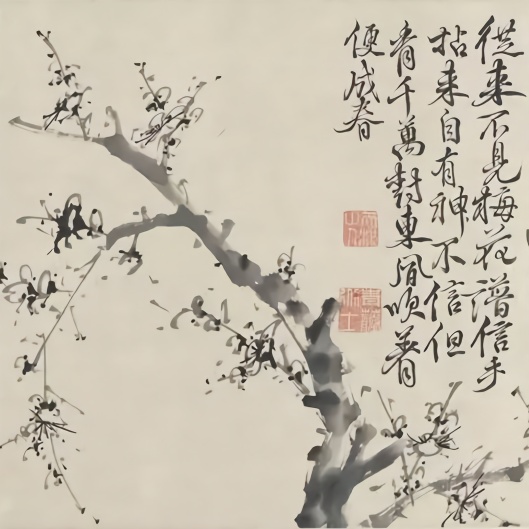 從來不見梅花譜信手
拈来自有神不信但
看千萬樹東風吹着
便成春